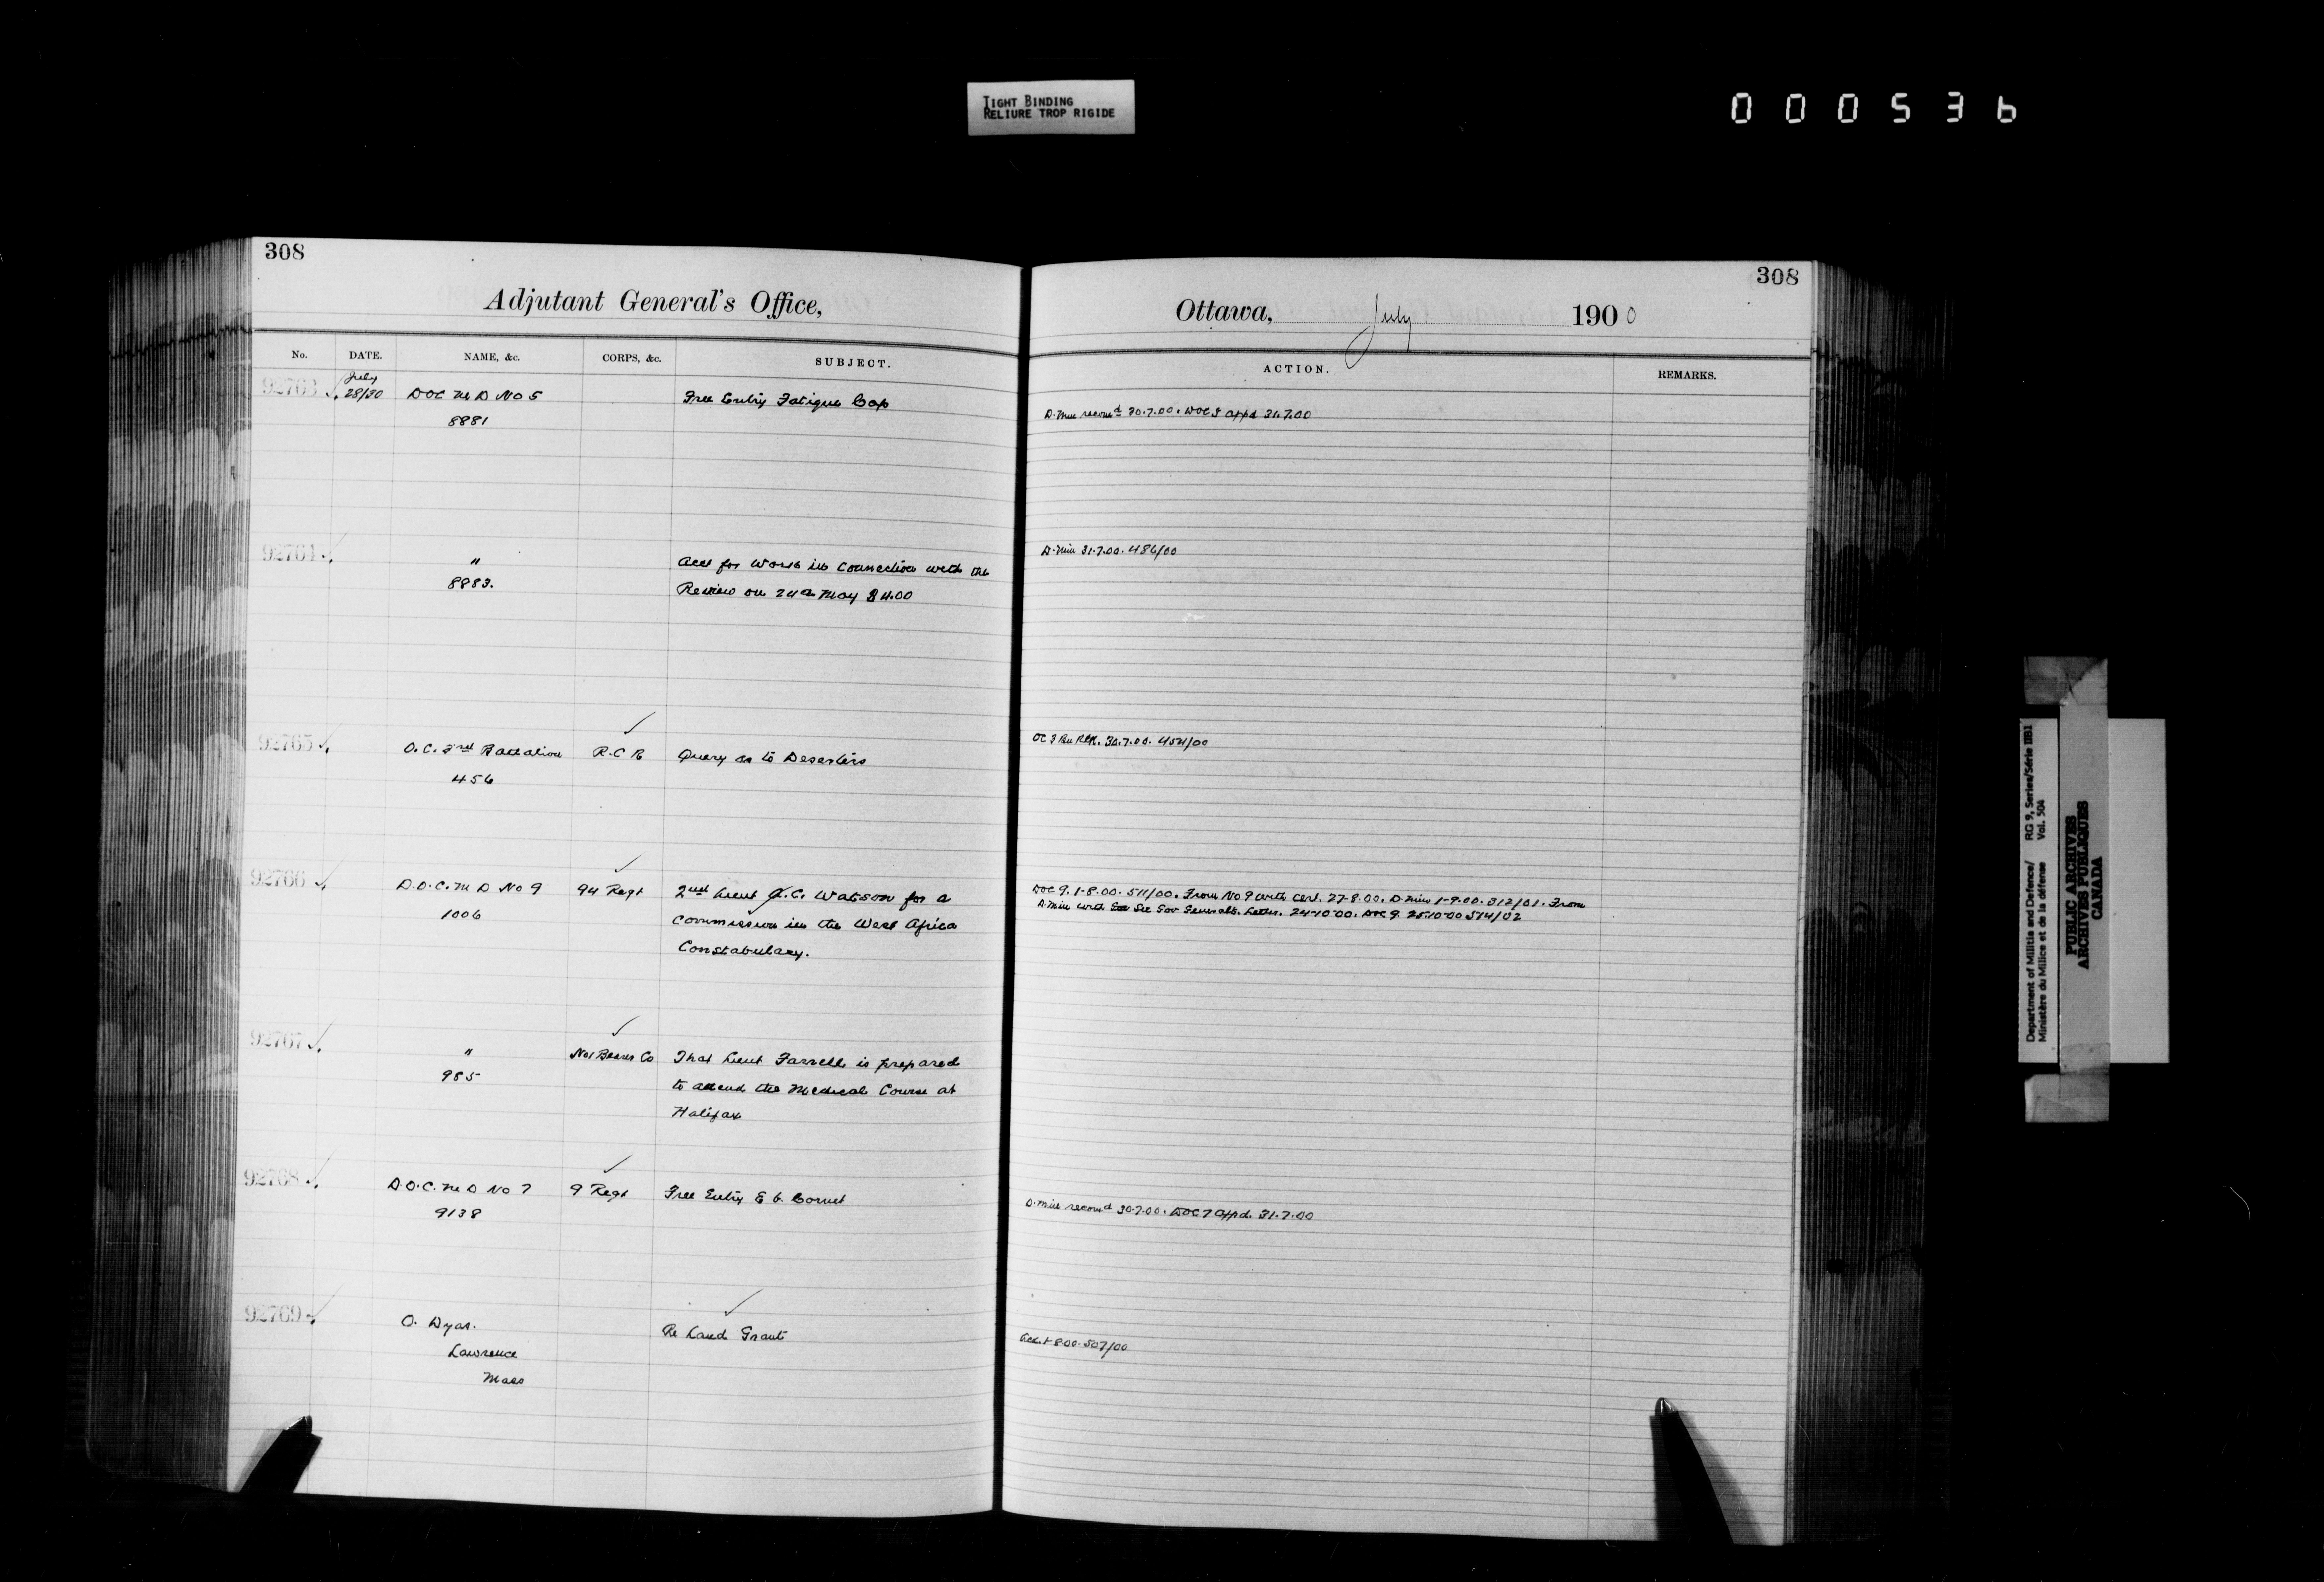 TIGHT BINDING
RELIURE TROP RIGIDE
000536
308
Adjutant General's Office,
No. DATE. NAME, &c. CORPS, &c. SUBJECT.
July
92763 28/30 DOC M D No 5 Free Entry Fatigue Cap
8881
92764 " Acct for Work in Connection with the
8883. Review on 24th May $4.00
92765 O.C. 3rd Battalion R.C R Query as to Deserters
456
92766 D.O.C. M D No 9 94 Regt 2nd Lieut C. Watson for a
1006 Commission in the West Africa
Constabulary.
92767 " No 1 Bearer Co That Lieut Farrell is prepared
985 to attend the Medical Course at
Halifax
92768 D.O.C. M D No 7 9 Regt Free Entry E b. Cornet
9138
92769 O. Dyar. Re Land Grant
Lawrence
Mass
308
Ottawa, July 1900
ACTION. REMARKS.
D. Min recomd 30.7.00. DOC 5 appd 31.7.00
D. Min 31.7.00. 486/00
OC 3 Bn RCR. 30.7.00. 454/00
DOC 9. 1-8.00. 511/00. From No 9 with cert. 27-8.00. D. Min 1-9.00. 312/01. From
D. Min with Sec Gov Generals. Letter. 24-10-00. DOC 9. 25-10-00 514/02
D. Min recomd 30.7.00. DOC 7 appd. 31.7.00
Ack. 1-8.00. 507/00
Department of Militia and Defence/ RG 9, Series/Série IIB1
Ministère du Milice et de la défense Vol. 504
PUBLIC ARCHIVES
ARCHIVES PUBLIQUES
CANADA